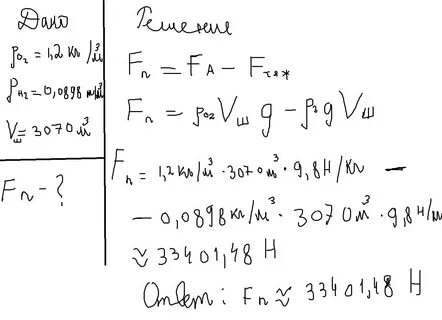 Дано
ρ₀₂ = 1,2 кг/м³
ρн₂ = 0,0898 кг/м³
Vш = 3070 м³
Fп - ?
Решение
Fп = FA - Fтяж
Fп = ρ₀₂ Vш g - ρг g Vш
Fп = 1,2 кг/м³ · 3070 м³ · 9,8 Н/кг -
- 0,0898 кг/м³ · 3070 м³ · 9,8 Н/м
≈ 33401,48 Н
Ответ: Fп ≈ 33401,48 Н